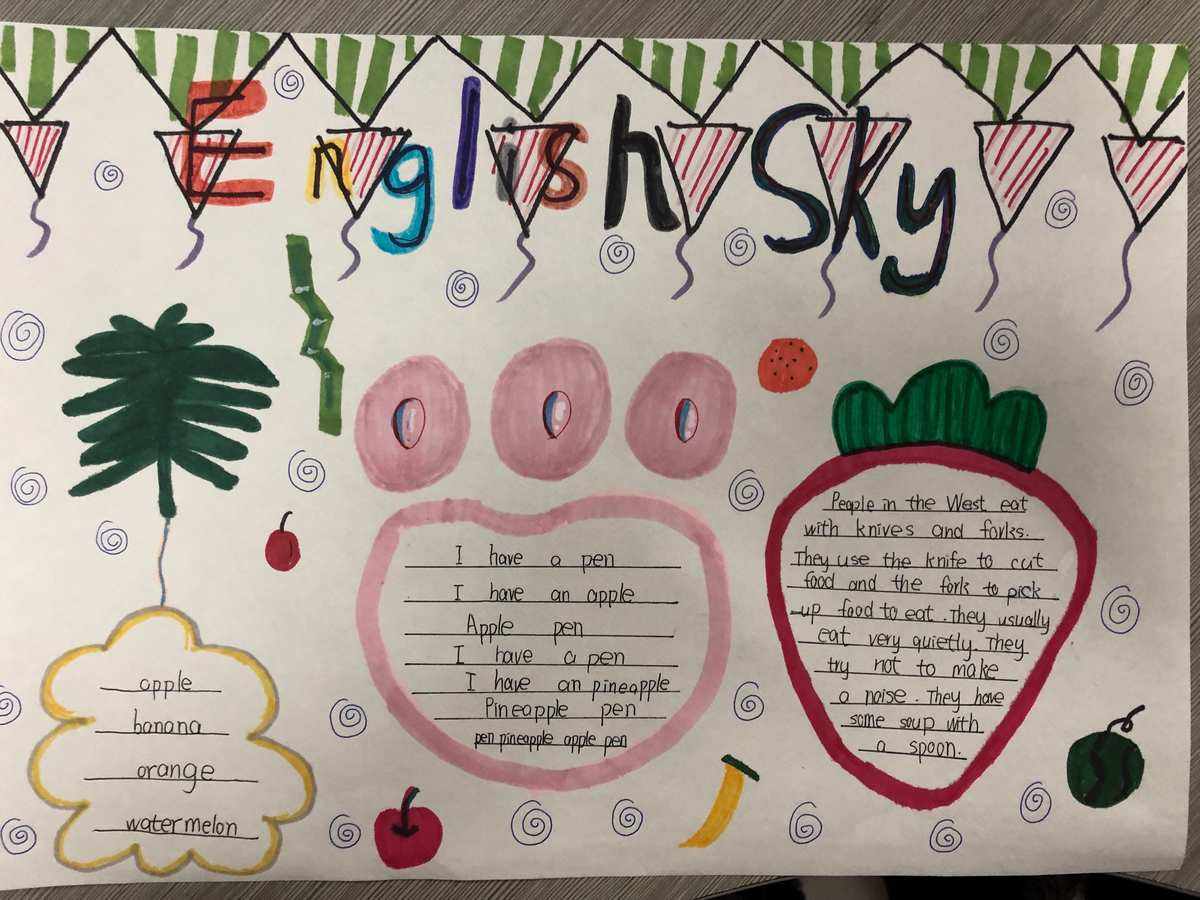 English Sky
apple
banana
orange
watermelon
I have a pen
I have an apple
Apple pen
I have a pen
I have an pineapple
Pineapple pen
pen pineapple apple pen
People in the West eat
with knives and forks.
They use the knife to cut
food and the fork to pick
up food to eat. They usually
eat very quietly. They
try not to make
a noise. They have
some soup with
a spoon.